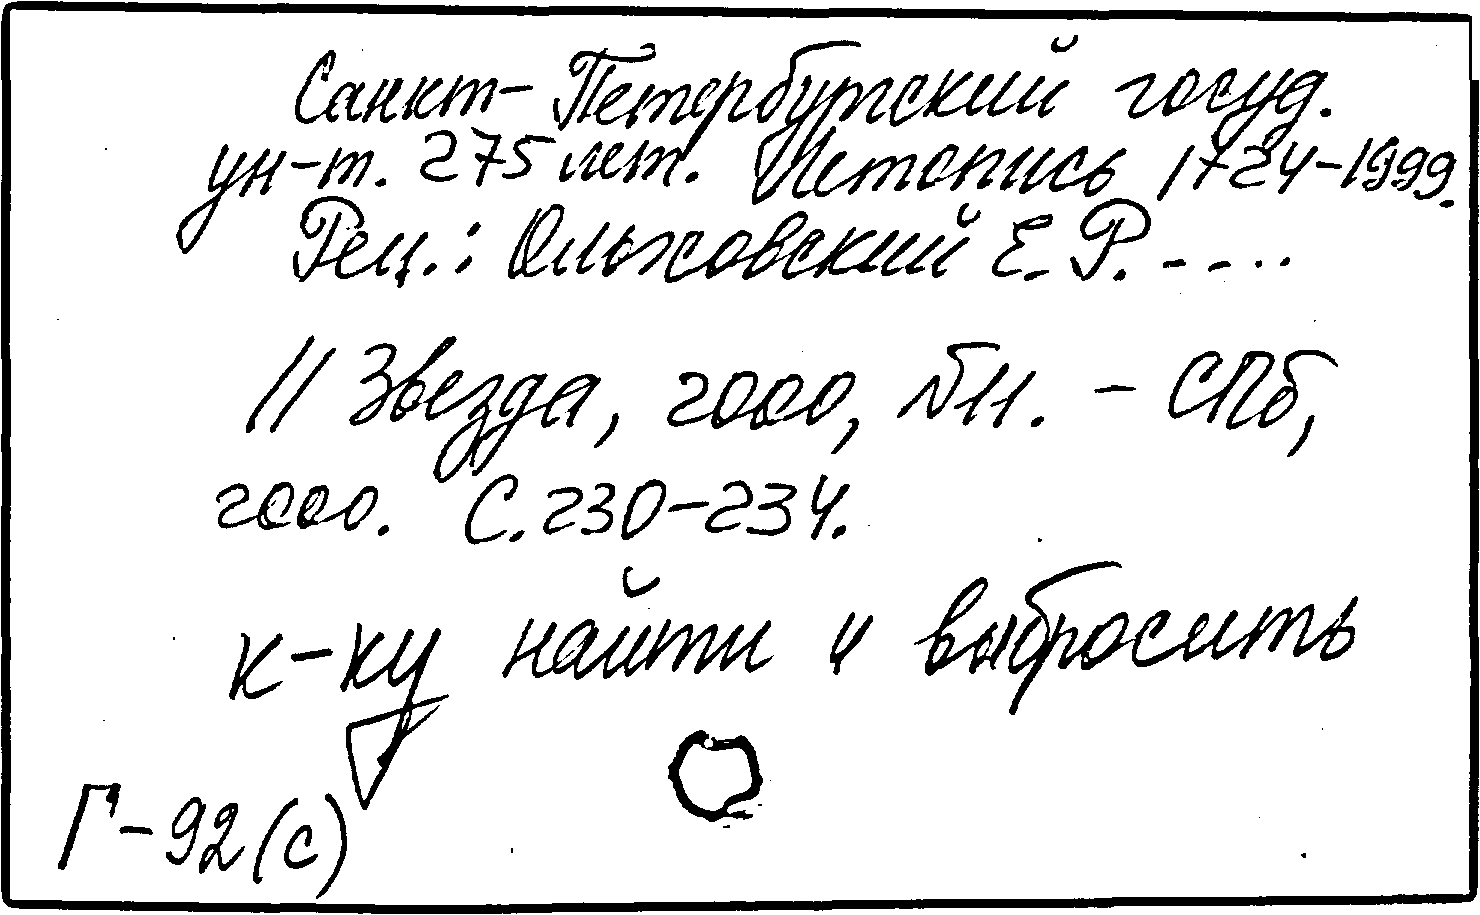 Санкт-Петербургский госуд.
ун-т. 275 лет. Летопись 1724-1999.
Рец.: Ольховский Е.Р. - - . .
// Звезда, 2000, №11. - СПб,
2000. С.230-234.
к-ку найти и выбросить
Г-92(с)